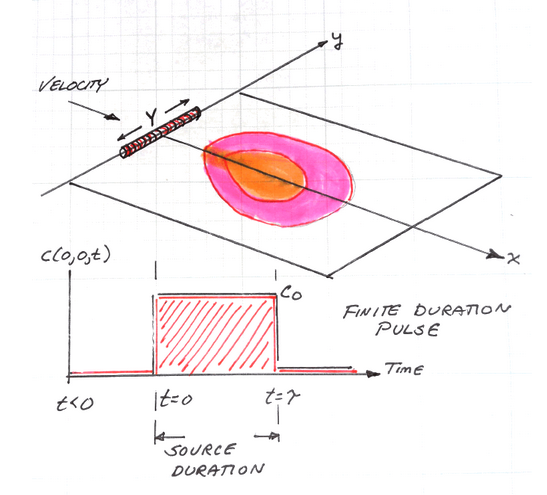 y
VELOCITY
Y
x
C(0,0,t)
C0
FINITE DURATION
PULSE
TIME
t<0
t=0
t=τ
SOURCE
DURATION